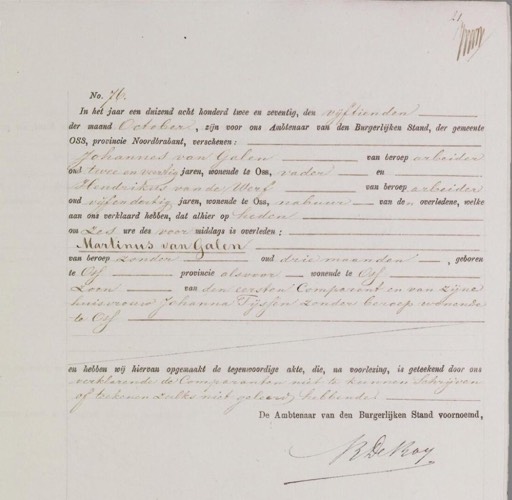 21.
No. 76.
In het jaar een duizend acht honderd twee en zeventig, den vijftienden
der maand October, zijn voor ons Ambtenaar van den Burgerlijken Stand, der gemeente
OSS, provincie Noordbrabant, verschenen:
Johannes van Galen van beroep arbeider
oud twee en veertig jaren, wonende te Oss, vader en
Hendrikus van de Werf van beroep arbeider
oud vijfendertig jaren, wonende te Oss, nabuur van den overledene, welke
aan ons verklaard hebben, dat alhier op heden
om zes ure des voor middags is overleden;
Martinus van Galen
van beroep zonder oud drie maanden, geboren
te Oss provincie alsvoor wonende te Oss
Zoon van den eersten Comparant en van zijne
huisvrouw Johanna Tijssen zonder beroep wonende
te Oss
en hebben wij hiervan opgemaakt de tegenwoordige akte, die, na voorlezing, is geteekend door ons
verklarende de Comparanten niet te kunnen Schrijven
of tekenen zulks niet geleerd hebbende
De Ambtenaar van den Burgerlijken Stand voornoemd,